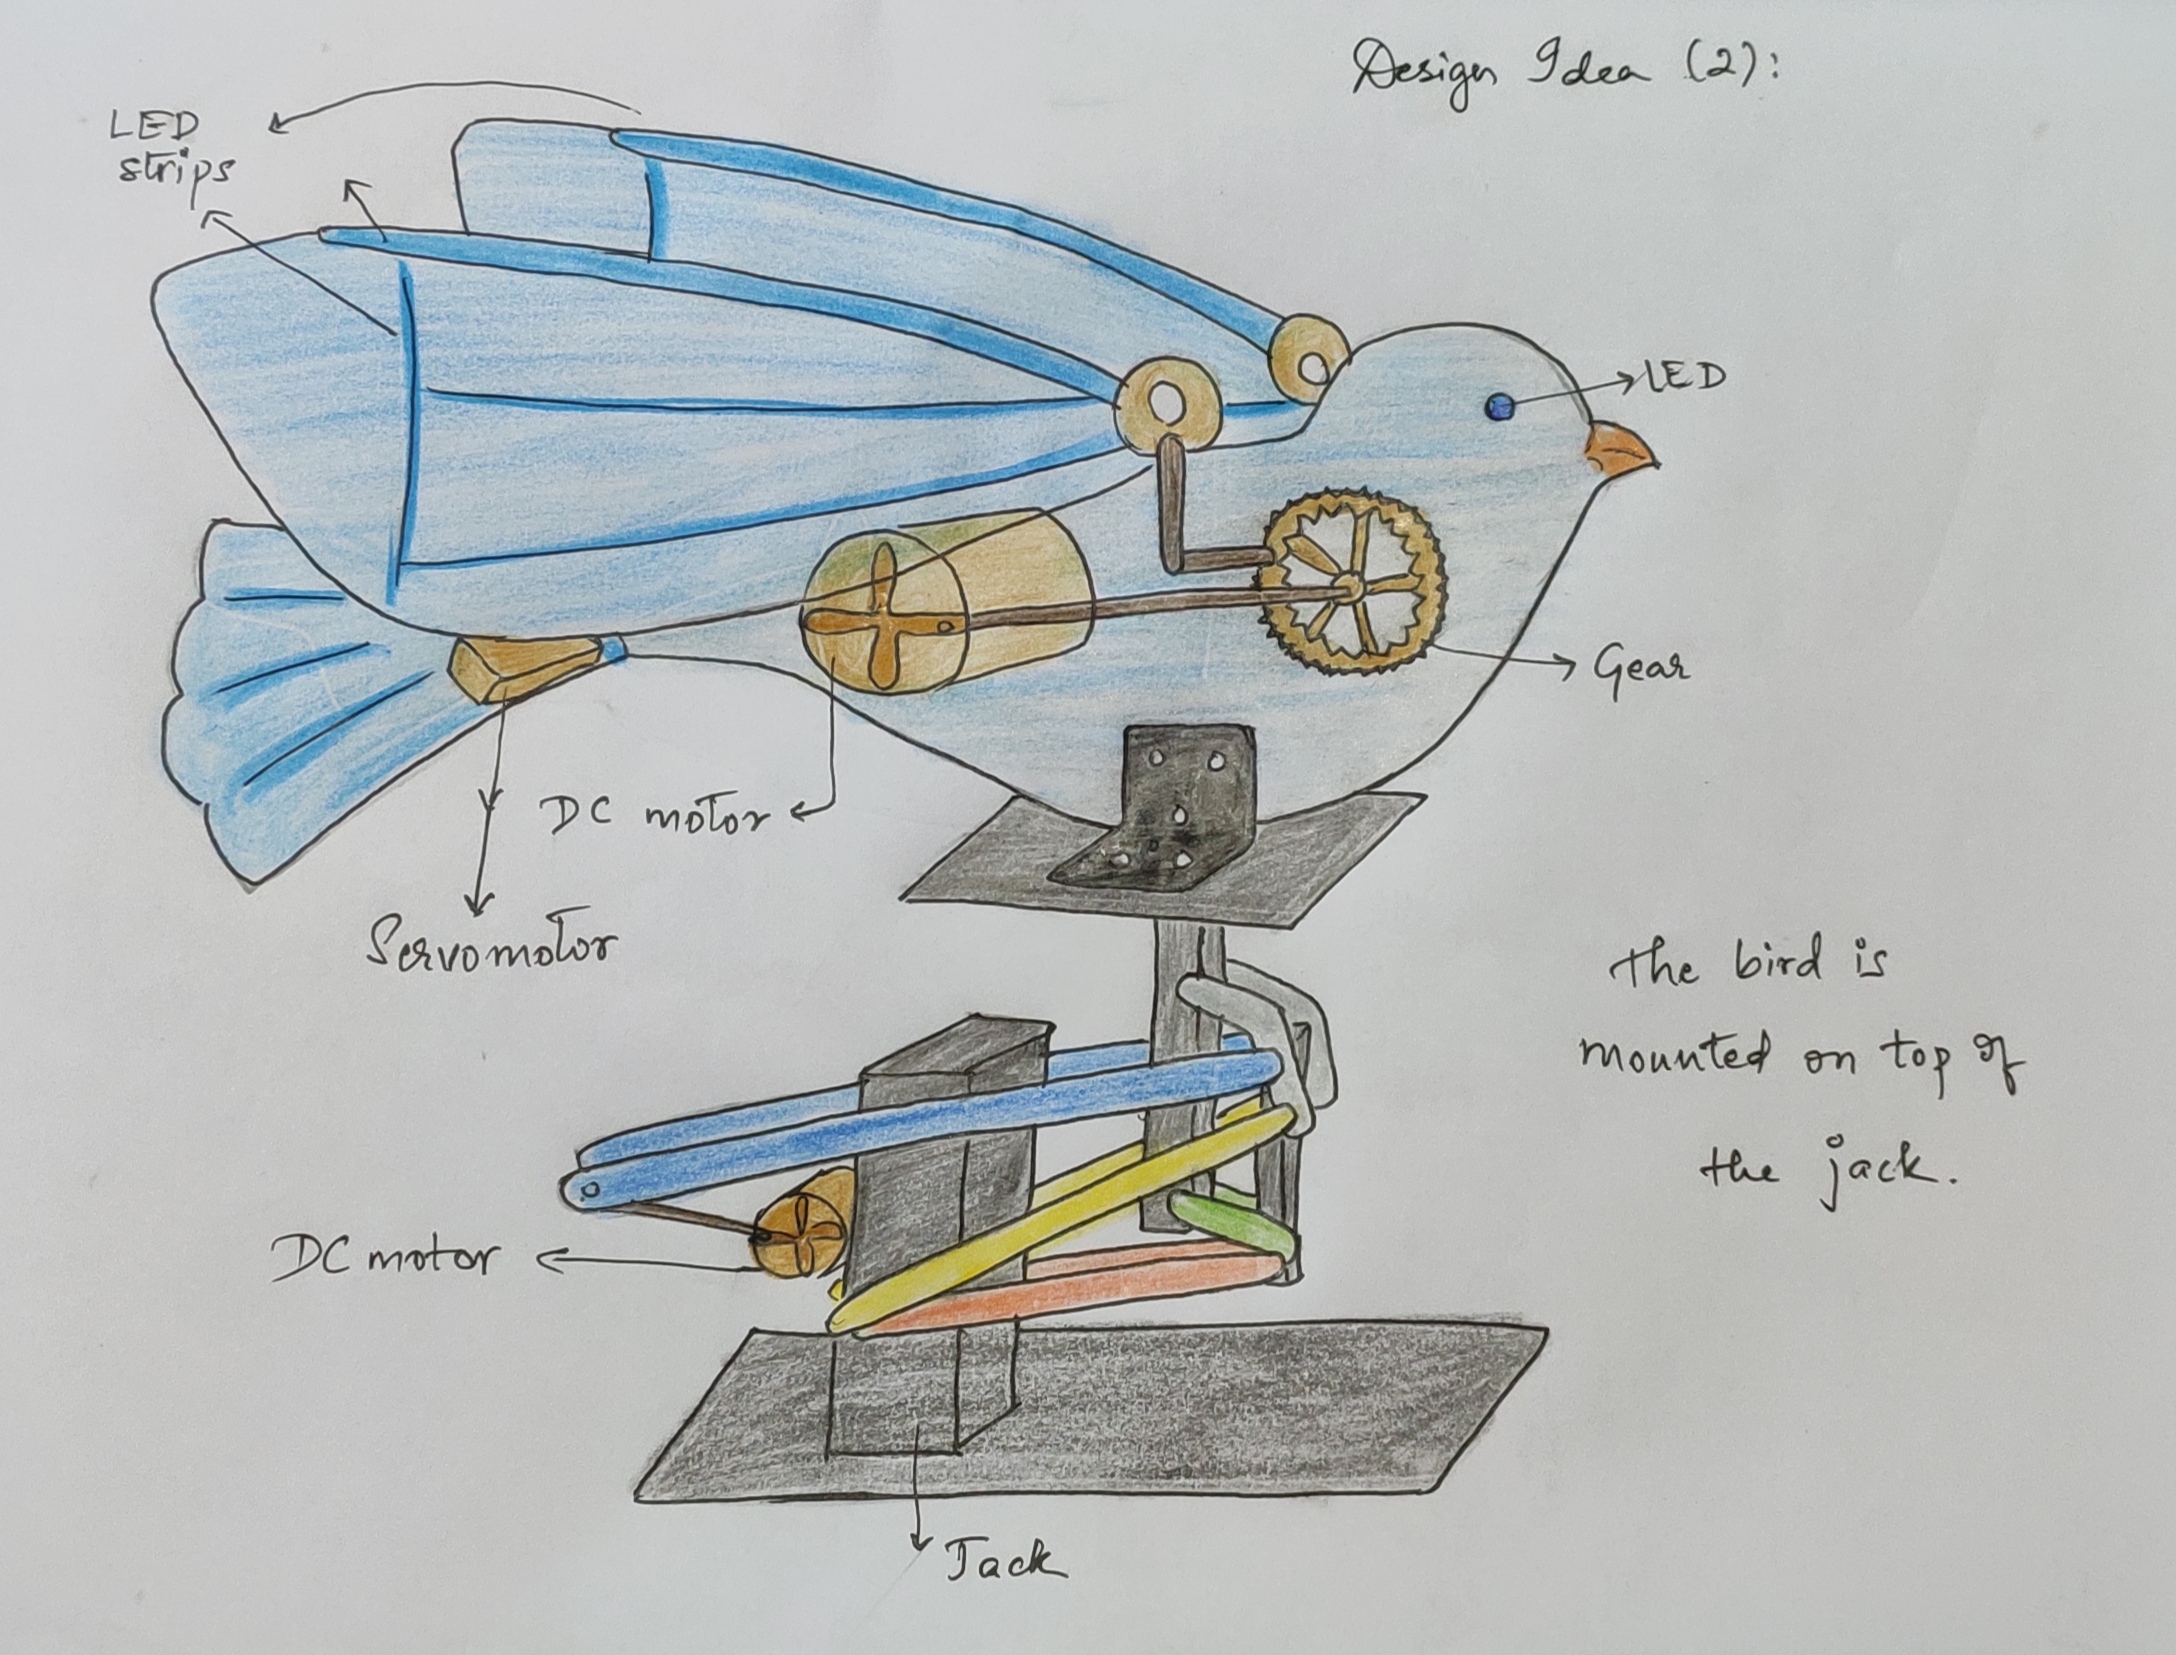 Design Idea (2):
LED
strips
LED
Gear
DC motor
Servomotor
the bird is
mounted on top of
the jack.
DC motor
Jack